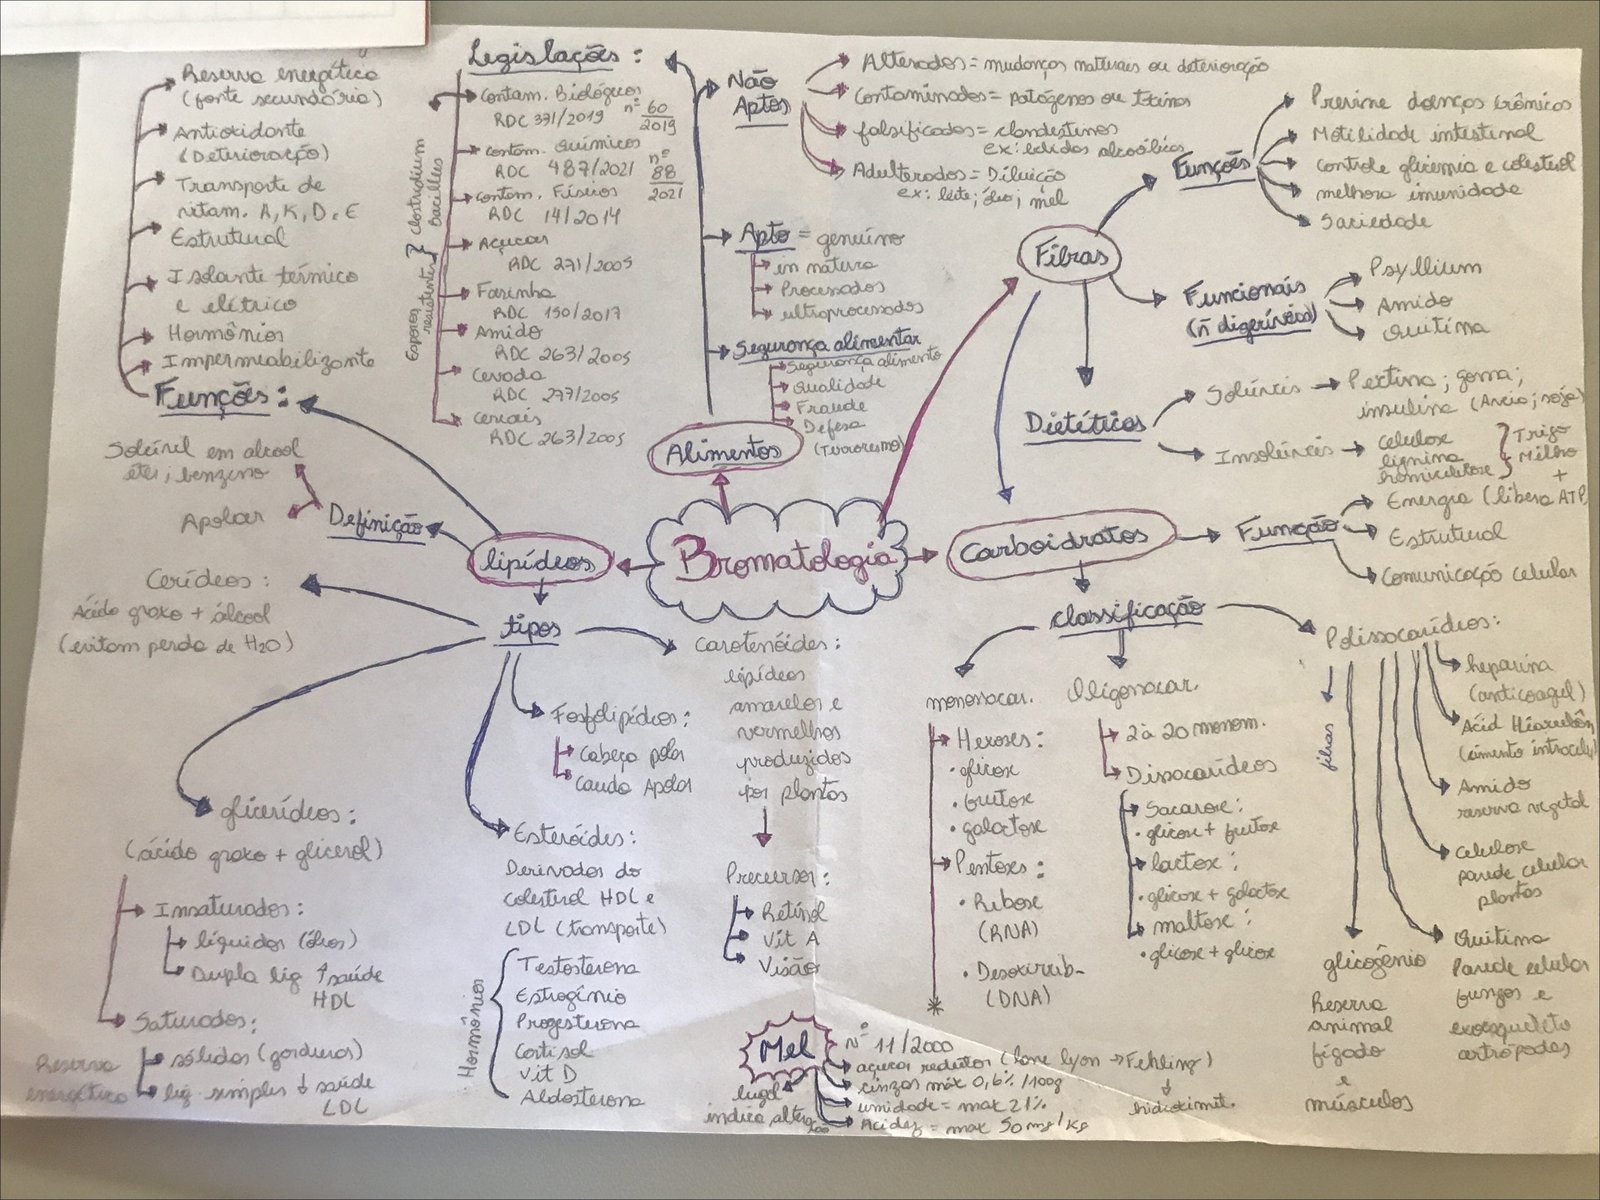 Reserva energética
(fonte secundária)
Antioxidante
(Deterioração)
Transporte de
vitam. A, K, D, E
Estrutural
Isolante térmico
e elétrico
Hormônios
Impermeabilizante
Funções:
Legislações:
Contam. Biológicos
RDC 331/2019
nº 60
2019
contam. Químicos
RDC 487/2021
nº
88
2021
contam. Físicos
RDC 14/2014
Açúcar
RDC 271/2005
Farinha
RDC 150/2017
Amido
RDC 263/2005
Cevada
RDC 277/2005
cereais
RDC 263/2005
Esporos
resistentes
Clostridium
Bacillus
Não
Aptos
Alterados = mudanças naturais ou deterioração
Contaminados = patógenos ou toxinas
falsificados = clandestinos
ex: bebidas alcoólicas
Adulterados = Diluição
ex: leite; óleo; mel
Apto = genuíno
in natura
Processados
ultraprocessados
Segurança alimentar
Segurança alimento
Qualidade
Fraude
Defesa
(Terrorismo)
Alimentos
Fibras
Funções
Previne doenças crônicas
Motilidade intestinal
Controle glicemia e colesterol
melhora imunidade
Saciedade
Funcionais
(ñ digeríveis)
Psyllium
Amido
Quitina
Dietéticas
Solúveis → Pectina; goma;
insulina (Aveia; soja)
Insolúveis → celulose
lignina
hemicelulose
Trigo
Milho
+
Bromatologia
lipídeos
Definição
Solúvel em alcool
eter; benzeno
Apolar
tipos
Cerídeos:
Ácido graxo + álcool
(evitam perda de H2O)
glicerídeos:
(ácido graxo + glicerol)
Insaturados:
líquidos (óleos)
Dupla lig ↑ saúde
HDL
Saturados:
sólidos (gorduras)
lig. simples ↓ saúde
LDL
Reserva
energética
Fosfolipídios:
Cabeça polar
Cauda Apolar
Esteróides:
Derivados do
colesterol HDL e
LDL (transporte)
Hormônios
Testosterona
Estrogênio
Progesterona
Cortisol
Vit D
Aldosterona
Carotenóides:
lipídeos
amarelos e
vermelhos
produzidos
por plantas
Precursor:
Retinol
Vit A
Visão
Carboidratos
Função
Energia (libera ATP)
Estrutural
Comunicação celular
Classificação
monossacar.
Hexoses:
• glicose
• frutose
• galactose
Pentoses:
• Ribose
(RNA)
• Desoxirrib-
(DNA)
Oligossacar.
2 à 20 monom.
Dissacarídeos
Sacarose:
• glicose + frutose
lactose:
• glicose + galactose
maltose:
• glicose + glicose
Polissacarídeos:
fibras
heparina
(anticoagul)
(cimento intracelu
Amido
reserva vegetal
celulose
parede celular
plantas
Quitina
Parede celular
fungos e
exoesqueleto
artrópodes
glicogênio
Reserva
animal
fígado
e
músculos
Mel
nº 11/2000
açúcar redutor (lane lyon → Fehling)
↓
hidroximet.
cinzas máx 0,6% /100g
umidade = max 21%
Acidez = max 50 mg/kg
lugol
indica alter